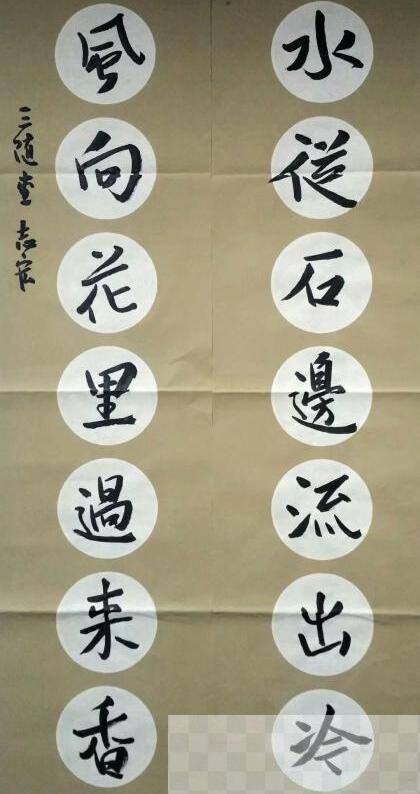 水從石邊流出冷
風向花里過来香
三随堂 志宏